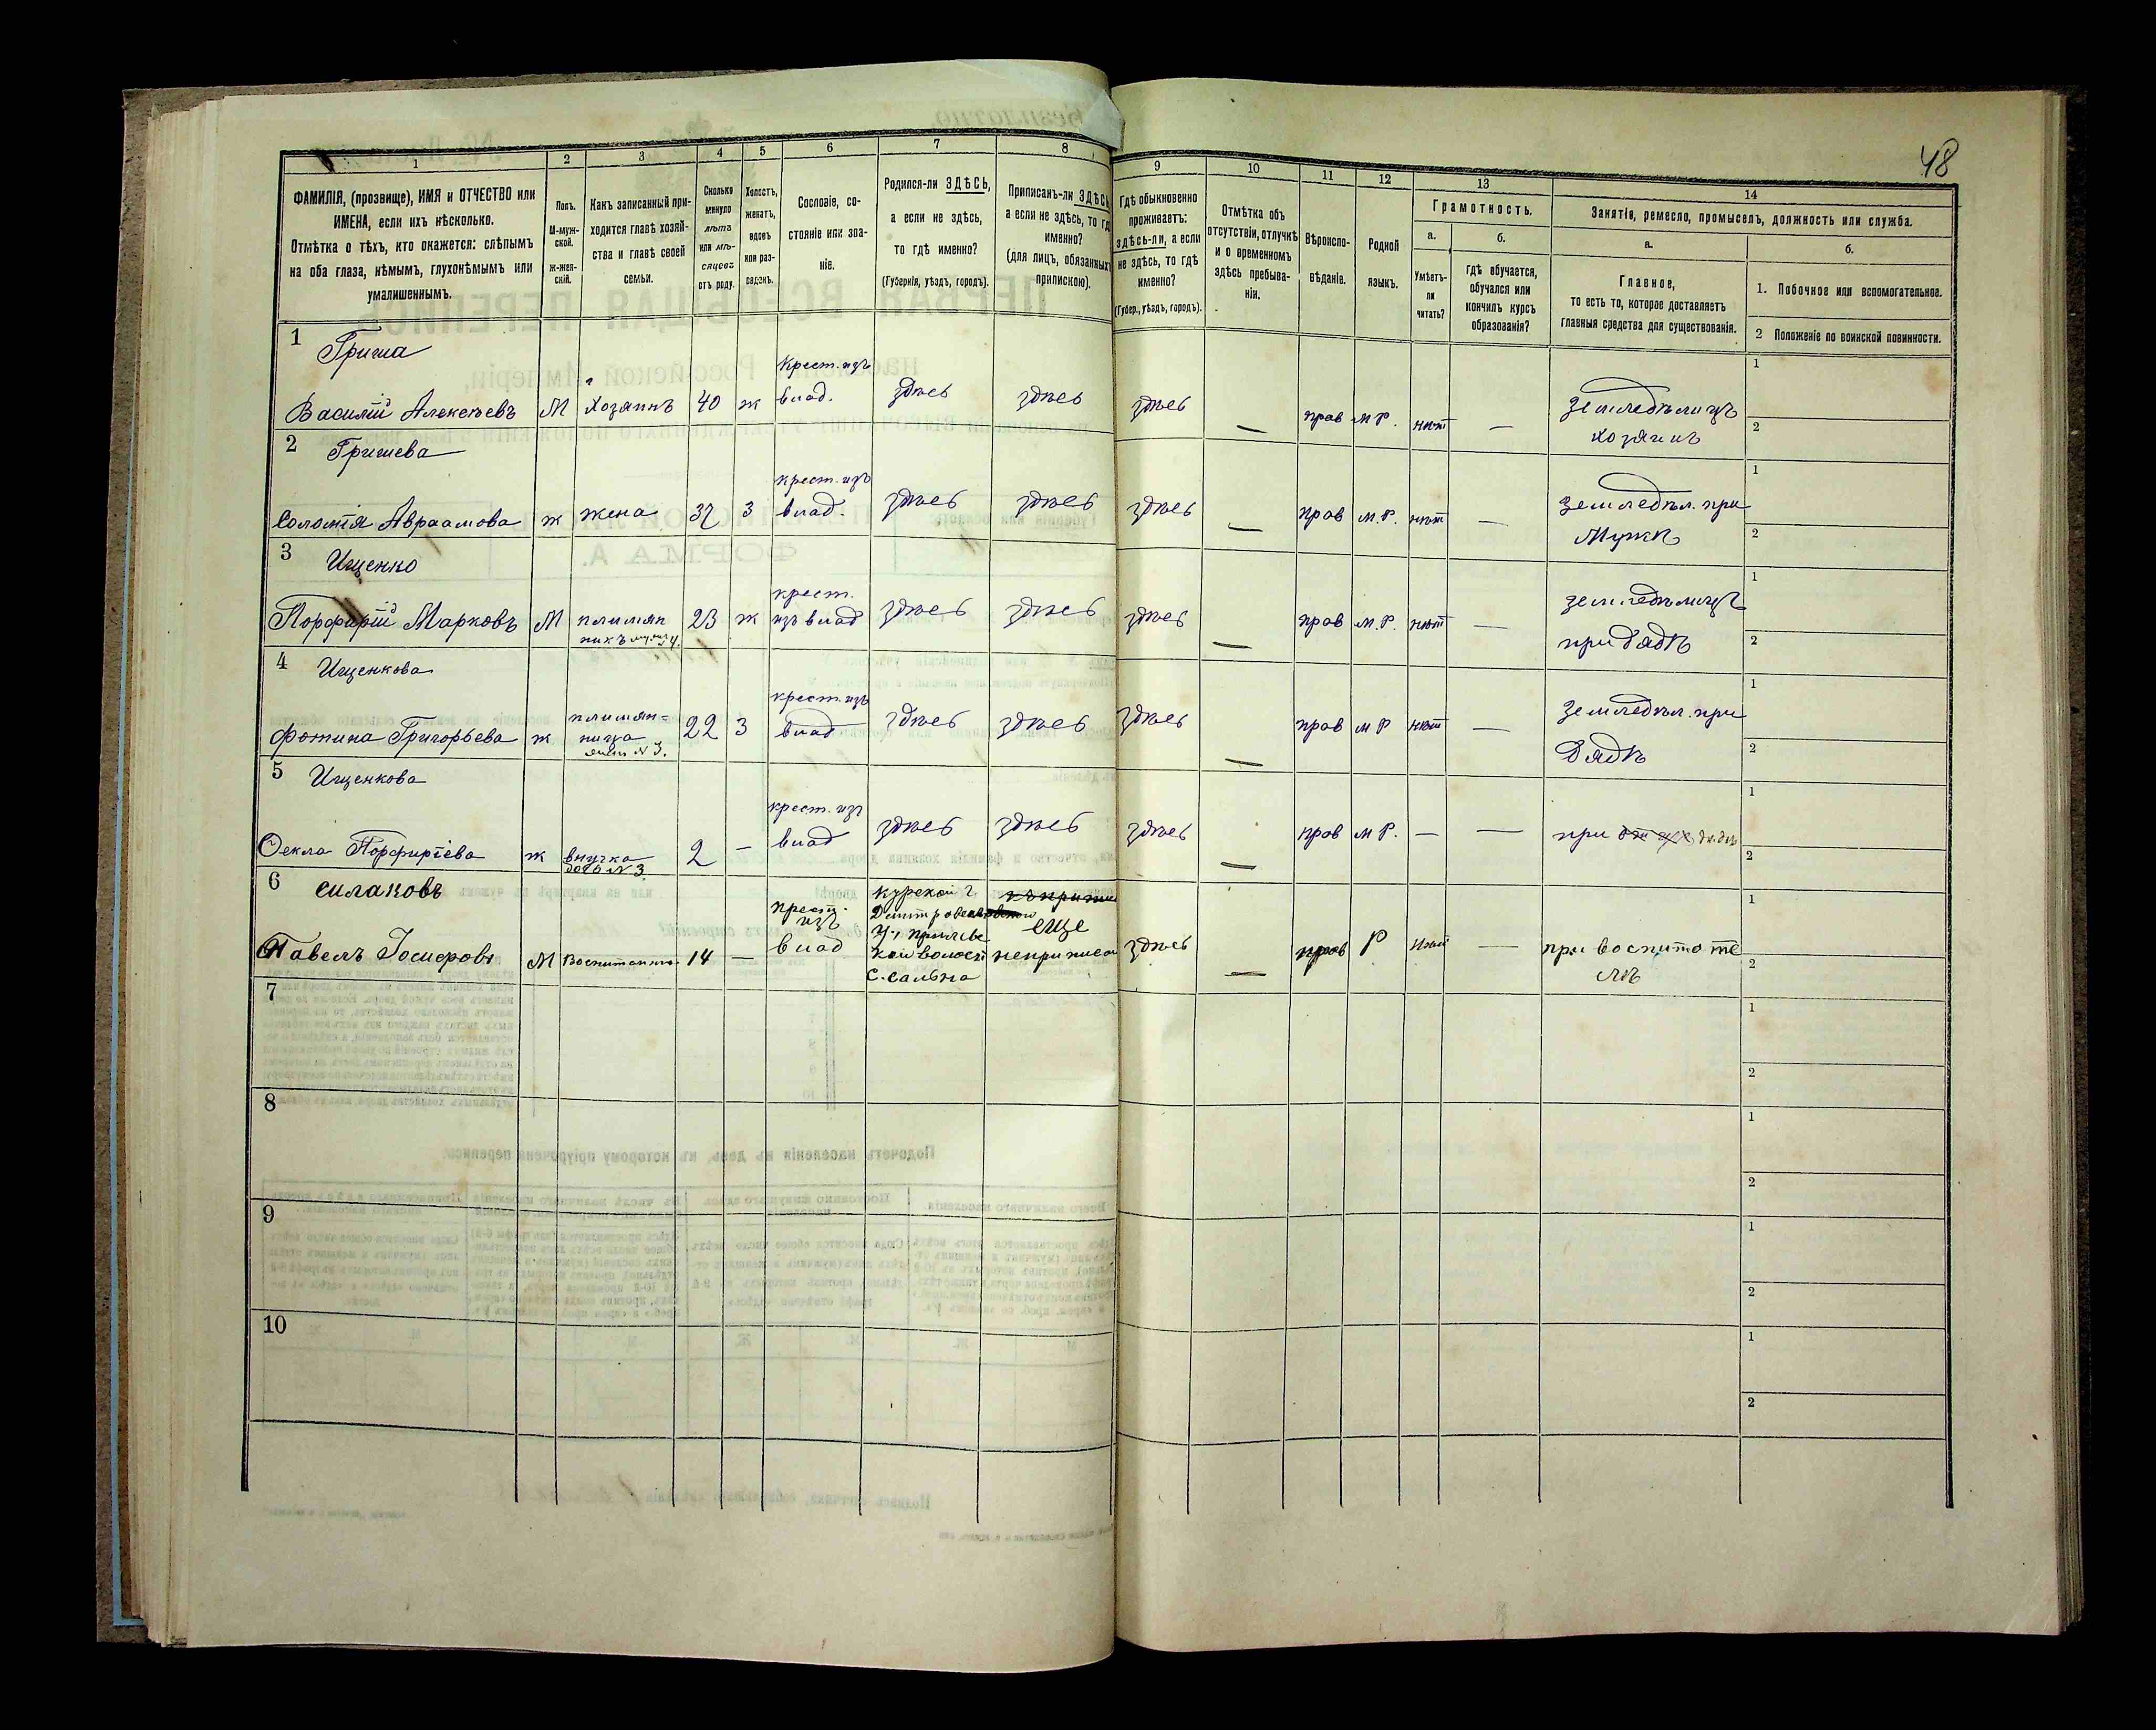 48
1
2
3
4
5
6
7
8
9
10
11
12
13
14
ФАМИЛІЯ, (прозвище), ИМЯ и ОТЧЕСТВО или
ИМЕНА, если ихъ нѣсколько.
Отмѣтка о тѣхъ, кто окажется: слѣпымъ
на оба глаза, нѣмымъ, глухонѣмымъ или
умалишеннымъ.
Полъ.
М-муж-
ской.
ж-жен-
скій.
Какъ записанный при-
ходится главѣ хозяй-
ства и главѣ своей
семьи.
Сколько
минуло
лѣтъ
или мѣ-
сяцевъ
отъ роду.
Холостъ,
женатъ,
вдовъ
или раз-
веденъ.
Сословіе, со-
стояніе или зва-
ніе.
Родился-ли ЗДѢСЬ,
а если не здѣсь,
то гдѣ именно?
(Губернія, уѣздъ, городъ).
Приписанъ-ли ЗДѢСЬ
а если не здѣсь, то гд
именно?
(для лицъ, обязанныхъ
припискою).
Гдѣ обыкновенно
проживаетъ:
здѣсь-ли, а если
не здѣсь, то гдѣ
именно?
(Губер., уѣздъ, городъ).
Отмѣтка объ
отсутствіи, отлучкѣ
и о временномъ
здѣсь пребыва-
ніи.
Вѣроиспо-
вѣданіе.
Родной
языкъ.
Грамотность.
а.
б.
Умѣетъ-
ли
читать?
гдѣ обучается,
обучался или
кончилъ курсъ
образованія?
Занятіе, ремесло, промыселъ, должность или служба.
а.
б.
Главное,
то есть то, которое доставляетъ
главныя средства для существованія.
1. Побочное или вспомогательное.
2 Положеніе по воинской повинности.
1 Гриша
Василій Алексѣевъ М Хозяинъ 40 ж Крест. изъ
влад. здѣсь здѣсь здѣсь — прав м Р. нѣт — земледѣлицъ
хозяинъ
1
2
2 Гришева
Соломія Авраамова ж жена 37 з крест. изъ
влад. здѣсь здѣсь здѣсь — прав м.Р. нѣт — земледѣл. при
Мужѣ
1
2
3 Ищенко
Порфирій Марковъ М племян
никъ 23 ж крест.
изъ влад здѣсь здѣсь здѣсь — прав м.Р. нѣт — земледѣлицъ
при дядѣ
1
2
4 Ищенкова
Фотина Григорьева ж племян=
ница
N 3. 22 з крест. изъ
влад здѣсь здѣсь здѣсь — прав м Р нѣт — земледѣл. при
дядѣ
1
2
5 Ищенкова
Ѳекла Порфиріева ж внучка
дочь N 3. 2 — крест. изъ
влад здѣсь здѣсь здѣсь — прав м Р. — — при
1
2
6 Силаковъ
Павелъ Іосифовъ М 14 — крест.
изъ
влад Курской г
у.,
С. Сально еще
неприписан здѣсь — прав Р нѣт — при воспитате
лѣ
1
2
7
1
2
8
1
2
9
1
2
10
1
2